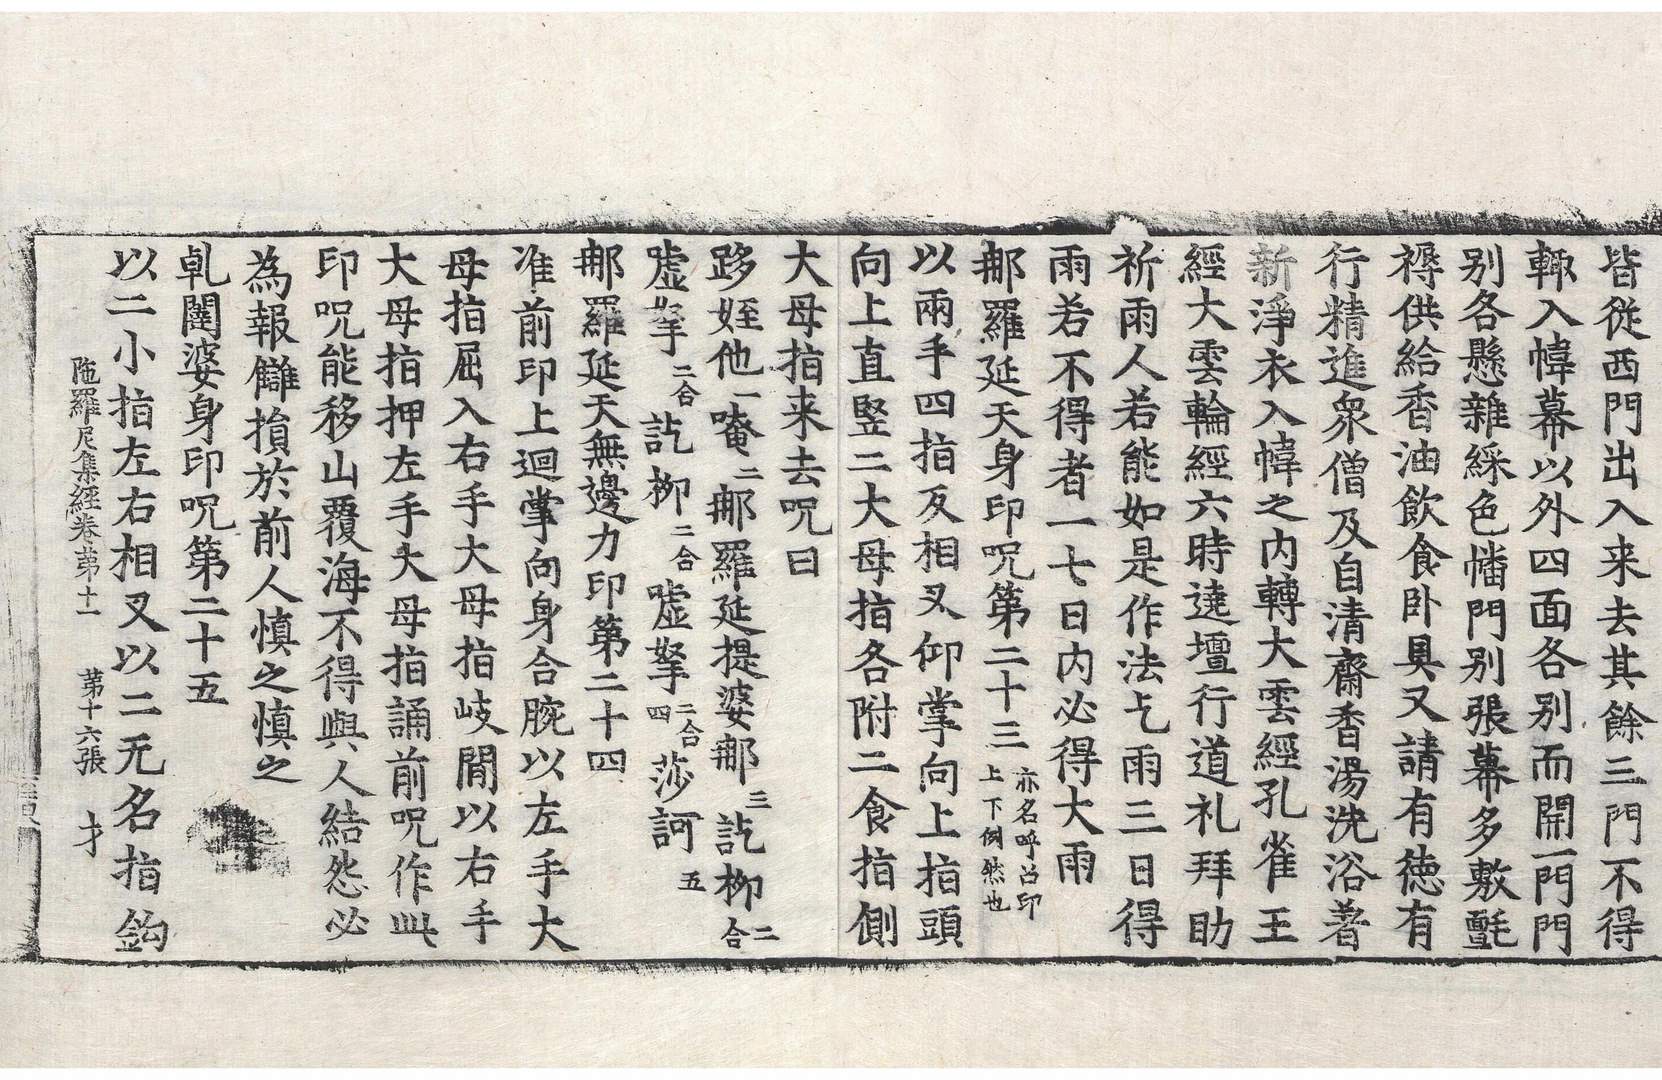 皆從西門出入来去其餘三門不得
輙入幃幕以外四面各别而開一門門
别各懸雜綵色幡門别張幕多敷氎
褥供給香油飲食卧具又請有徳有
行精進衆僧及自清齋香湯洗浴著
新淨衣入幃之内轉大雲經孔雀王
經大雲輪經六時遶壇行道礼拜助
祈雨人若能如是作法乞雨三日得
雨若不得者一七日内必得大雨
那羅延天身印呪第二十三亦名呼召印上下例然也
以兩手四指反相叉仰掌向上指頭
向上直竪二大母指各附二食指側
大母指来去呪曰
跢姪他一唵二那羅延提婆那三訖柳二合
嘘拏二合訖柳二合嘘拏二合四莎訶五
那羅延天無邊力印第二十四
准前印上迴掌向身合腕以左手大
母指屈入右手大母指歧間以右手
大母指押左手大母指誦前呪作此
印呪能移山覆海不得與人結怨必
為報讎損於前人慎之慎之
乹闥婆身印呪第二十五
以二小指左右相叉以二无名指鈎
陁羅尼集經卷第十一 第十六張 才